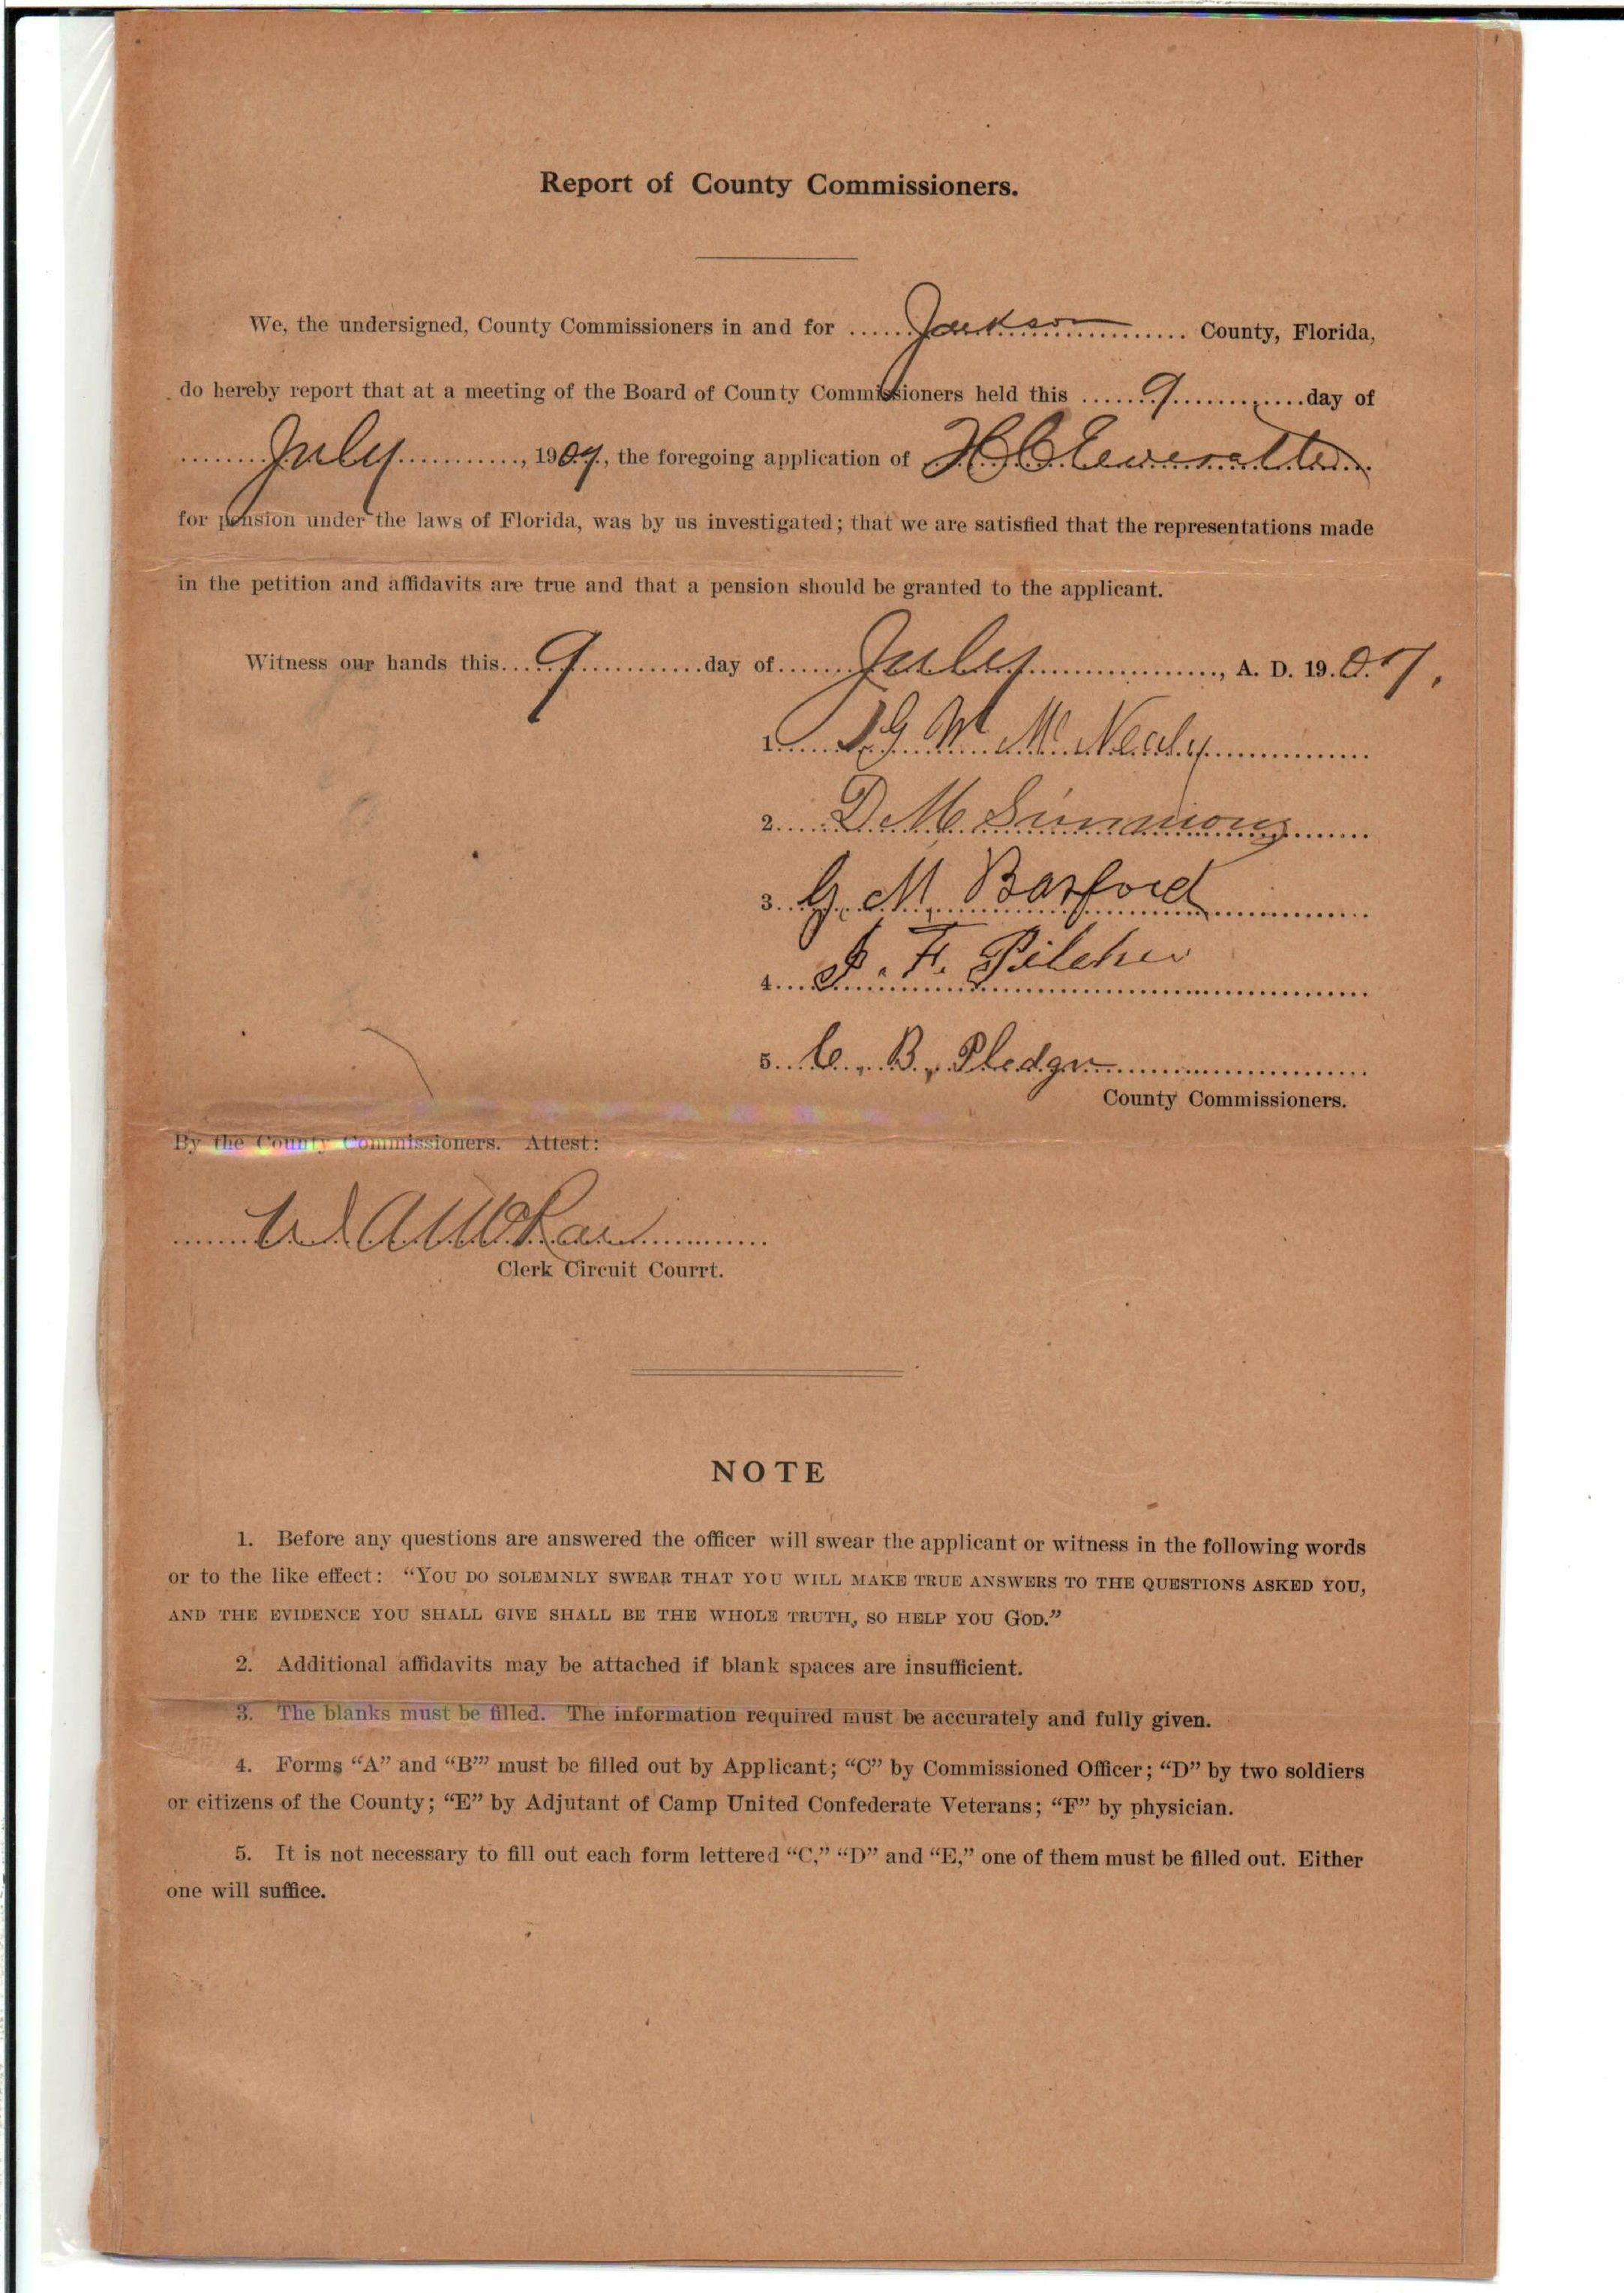 Report of County Commissioners.
We, the undersigned, County Commissioners in and for Jackson County, Florida,
do hereby report that at a meeting of the Board of County Commissioners held this 9 day of
July, 1907, the foregoing application of H C
for pension under the laws of Florida, was by us investigated; that we are satisfied that the representations made
in the petition and affidavits are true and that a pension should be granted to the applicant.
Witness our hands this 9 day of July, A. D. 19.07.
1. G W McNealy
2. D M Simmons
3. G. M. Barford
4. J. F. Pilcher
5. C. B. Pledger
County Commissioners.
By the County Commissioners. Attest:
Clerk Circuit Courrt.
NOTE
1. Before any questions are answered the officer will swear the applicant or witness in the following words
or to the like effect: “YOU DO SOLEMNLY SWEAR THAT YOU WILL MAKE TRUE ANSWERS TO THE QUESTIONS ASKED YOU,
AND THE EVIDENCE YOU SHALL GIVE SHALL BE THE WHOLE TRUTH, SO HELP YOU GOD.”
2. Additional affidavits may be attached if blank spaces are insufficient.
3. The blanks must be filled. The information required must be accurately and fully given.
4. Forms “A” and “B”’ must be filled out by Applicant; “C” by Commissioned Officer; “D” by two soldiers
or citizens of the County; “E” by Adjutant of Camp United Confederate Veterans; “F” by physician.
5. It is not necessary to fill out each form lettered “C,” “D” and “E,” one of them must be filled out. Either
one will suffice.